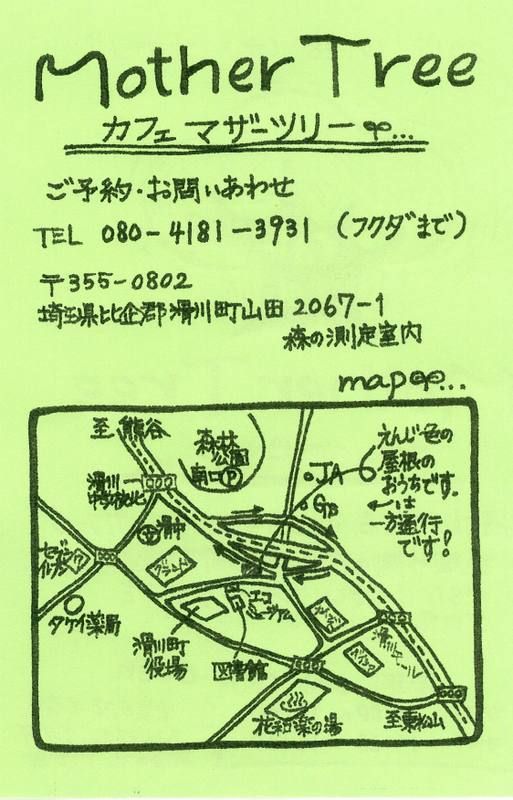 Mother Tree
カフェ マザーツリー
ご予約・お問いあわせ
TEL 080-4181-3931 (フクダまで)
〒355-0802
埼玉県比企郡滑川町山田 2067-1
森の測定室内
map
至 熊谷
森林
公園
南口 P
滑川
中学校北
JA
GS
えんじ色の
屋根の
おうちです。
←は
一方通行
です!
滑中
エコ
ミュージアム
タケイ薬局
滑川町
役場
図書館
滑川モール
花和楽の湯
至東松山